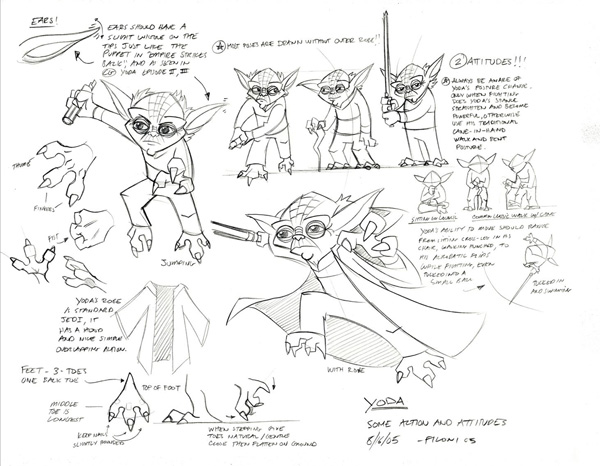 EARS!
EARS SHOULD HAVE A
SLIGHT WRINKLE ON THE
TIPS JUST LIKE THE
PUPPET IN "EMPIRE STRIKES
BACK", AND AS SEEN IN
CG YODA EPISODE II, III
MOST POSES ARE DRAWN WITHOUT OUTER ROBE!!
2 ATTITUDES!!!
ALWAYS BE AWARE OF
YODA'S POSTURE CHANGE.
ONLY WHEN FIGHTING
DOES YODA'S STANCE
STRAIGHTEN AND BECOME
POWERFUL, OTHERWISE
USE HIS TRADITIONAL
CANE-IN-HAND
WALK AND BENT
POSTURE.
THUMB
FINGERS
FIST
JUMPING
SITTING ON COUNCIL
COMMON CLASSIC WALK W/ CANE
YODA'S ABILITY TO MOVE SHOULD RANGE
FROM SITTING CROSS-LEG IN HIS
CHAIR, WALKING HUNCHED, TO
HIS ACROBATIC FLIPS
WHILE FIGHTING, EVEN
TUCKED INTO A
SMALL BALL
TUCKED IN
AND
YODA'S ROBE
IS STANDARD
JEDI, IT
HAS A HOOD
AND NICE SIMPLE
OVERLAPPING
WITH ROBE
FEET - 3-TOES
ONE BACK TOE
TOP OF FOOT
MIDDLE
TOE IS
LONGEST
KEEP NAILS
SLIGHTLY ROUNDED
WHEN STEPPING GIVE
TOES NATURAL/GENTLE
CURVE THEN FLATTEN ON GROUND
YODA
SOME ACTION AND ATTITUDES
8/6/05 - PILONI CS